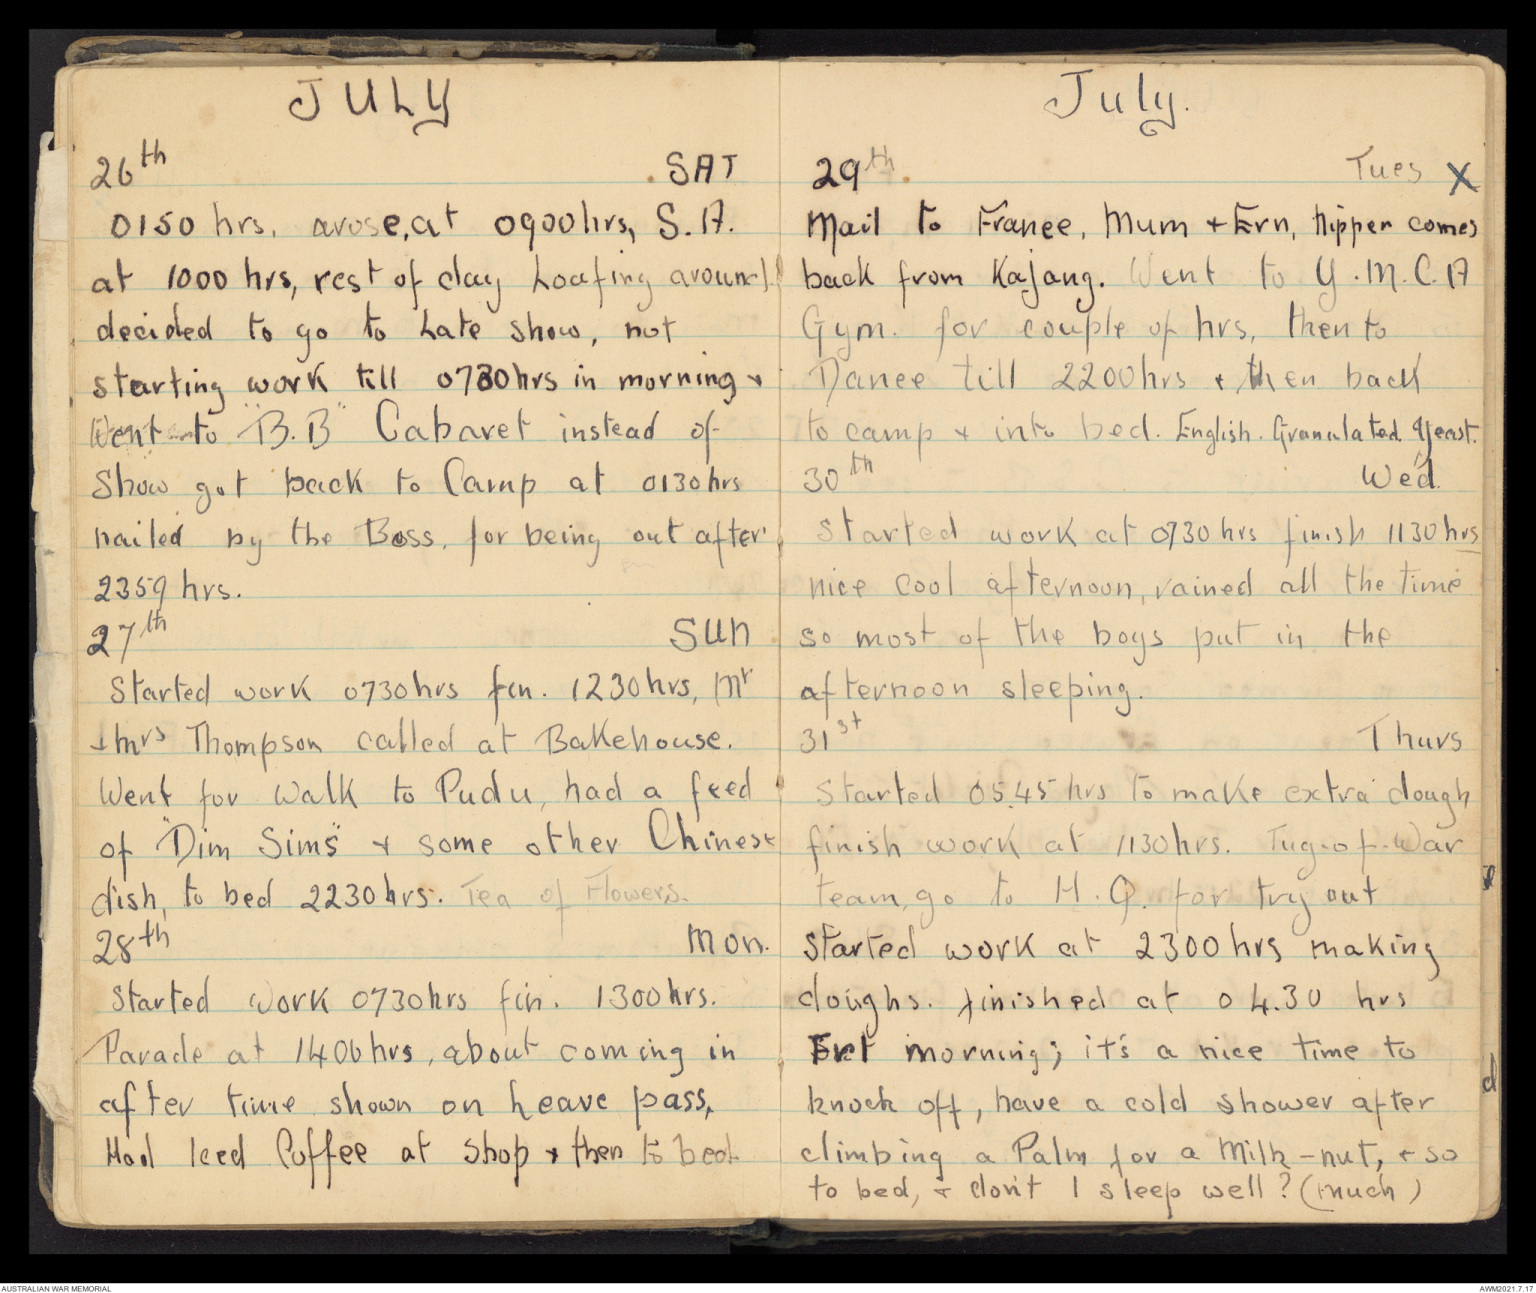 JULY
26th SAT
0150 hrs, arose, at 0900hrs, S.A.
at 1000 hrs, rest of day Loafing around
decided to go to Late show, not
starting work till 0730hrs in morning +
Went to "B.B" Cabaret instead of
Show got back to Camp at 0130hrs
nailed by the Boss, for being out after
2359 hrs.
27th SUN
Started work 0730hrs fin. 1230hrs, Mr
+ Mrs Thompson called at Bakehouse.
Went for Walk to Pudu, had a feed
of "Dim Sims" + some other Chinese
dish, to bed 2230hrs. Tea of Flowers.
28th Mon.
Started Work 0730hrs fin. 1300hrs.
Parade at 1400hrs, about coming in
after time shown on Leave pass,
Had Iced Coffee at shop + then to bed.
July.
29th. Tues X
Mail to France, Mum + Ern, Nipper comes
back from Kajang. Went to Y.M.C.A
Gym. for couple of hrs, then to
Dance till 2200hrs + then back
to camp + into bed. English. Granulated Yeast.
30th Wed.
Started work at 0730hrs finish 1130hrs
nice cool afternoon, rained all the time
so most of the boys put in the
afternoon sleeping.
31st Thurs
Started 05.45 hrs to make extra dough
finish work at 1130hrs. Tug-of-War
team, go to H.Q. for try out
Started work at 2300hrs making
doughs. finished at 04.30 hrs
morning; it's a nice time to
knock off, have a cold shower after
climbing a Palm for a Milk-nut, + so
to bed, + don't I sleep well? (much)
d
AUSTRALIAN WAR MEMORIAL
AWM2021.7.17